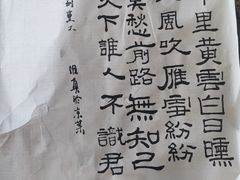 里黃雲白日曛
風吹雁雪紛紛
愁前路無知己
下誰人不識君
董大